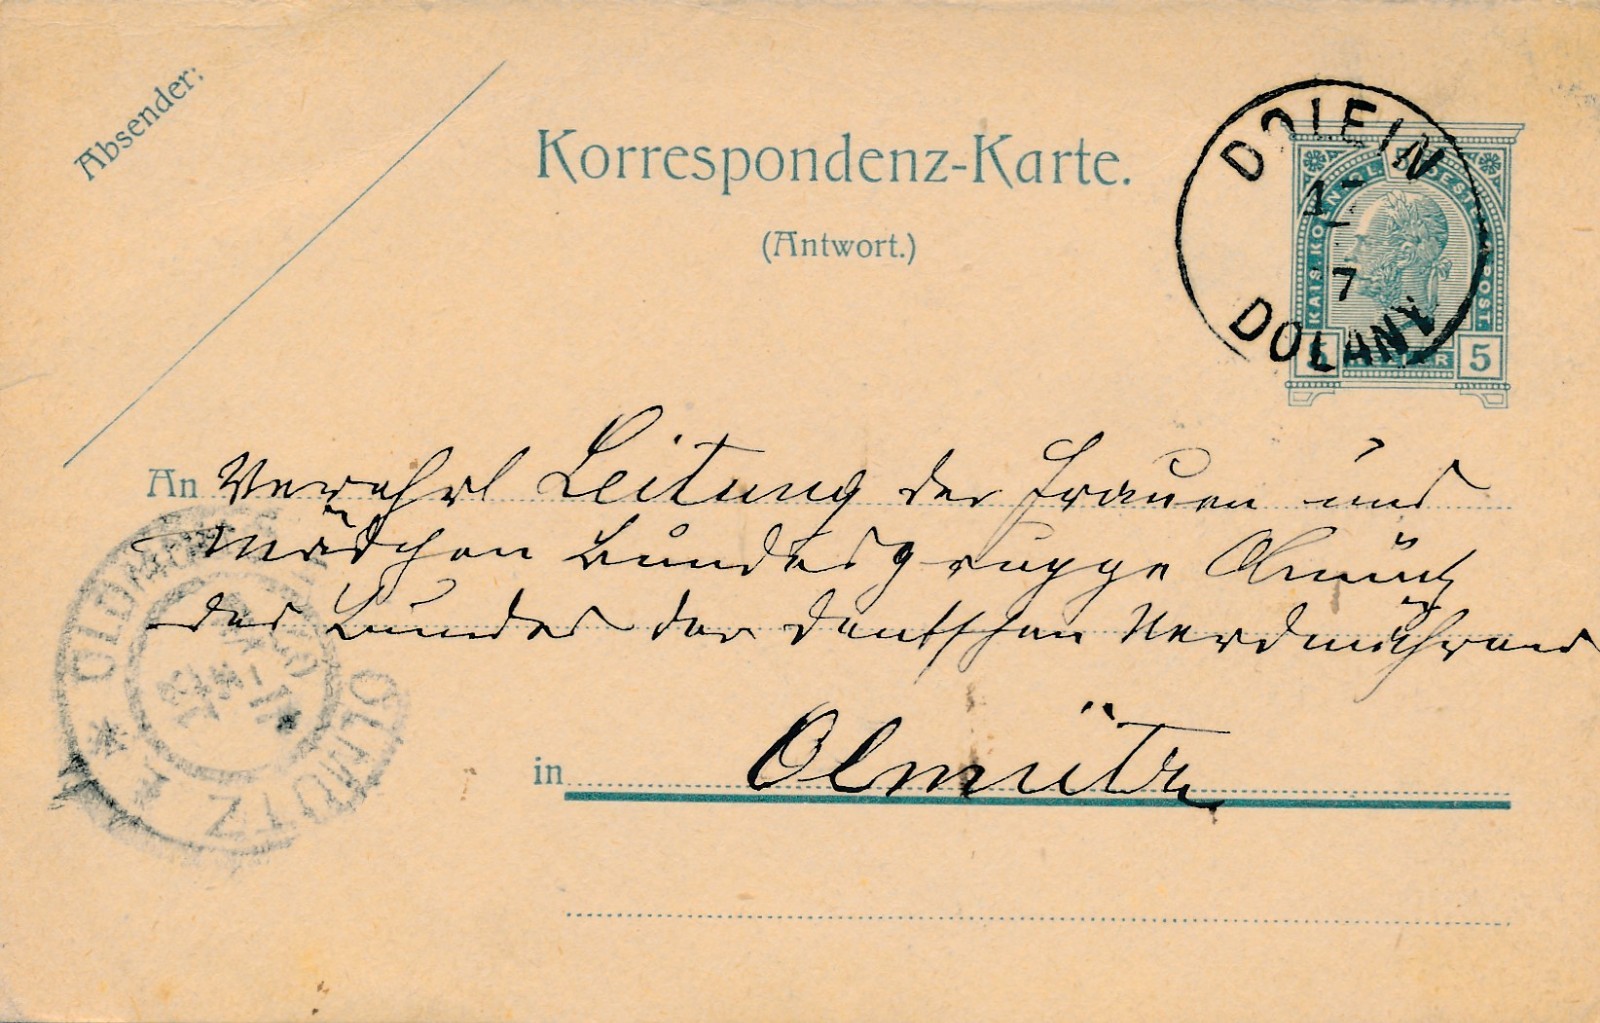 Absender:
Korrespondenz-Karte.
(Antwort.)
DOLEIN
17
7
DOLANY
KAIS. KÖNIGL. OESTERR. POST.
5 HELLER 5
An Verehrl Leitung der Frauen und
Mädchen Bundesgruppe Olmütz
des Bundes der Deutschen Nordmährens
in Olmütz
OLMÜTZ